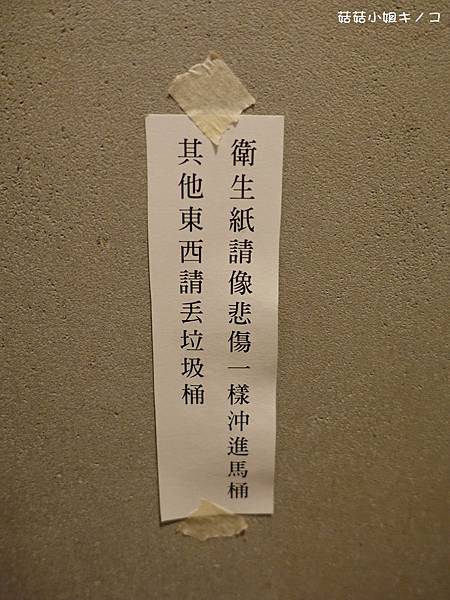 菇菇小姐キノコ
衛生紙請像悲傷一樣沖進馬桶
其他東西請丟垃圾桶